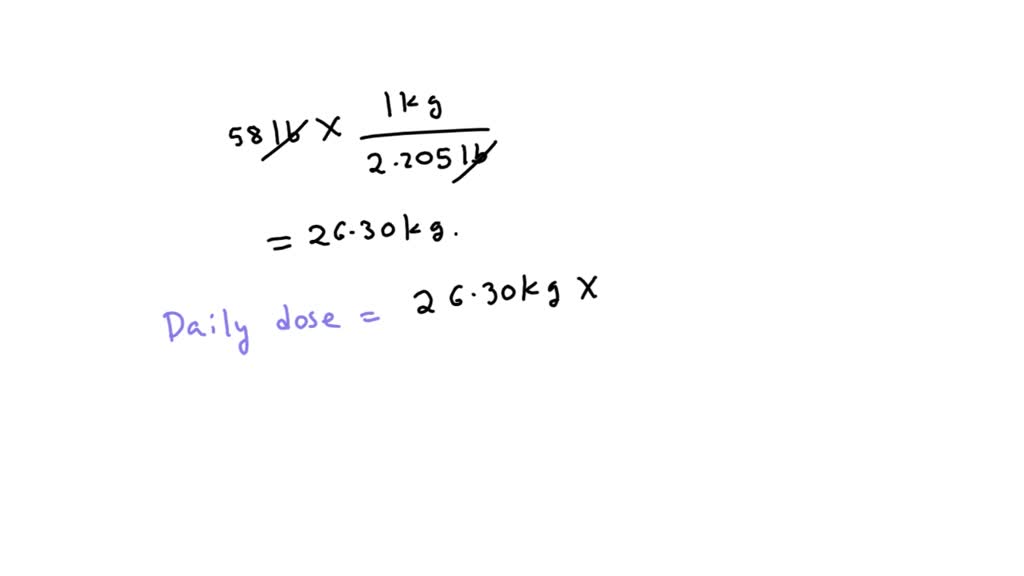 58 lb X 1kg / 2.205 lb
= 26.30kg.
Daily dose = 26.30kg X